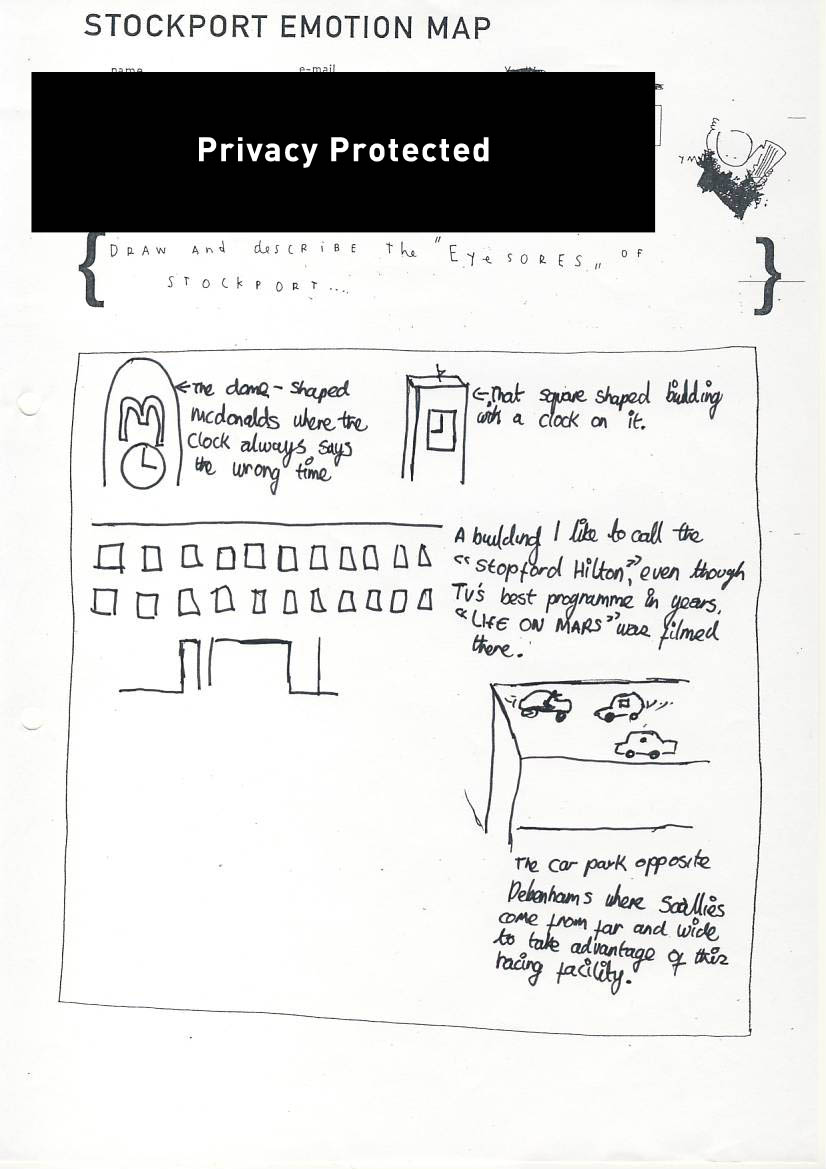 STOCKPORT EMOTION MAP
name e-mail
Privacy Protected
DRAW and desCRIBE the "EyeSORES" OF
STOCKPORT....
The dome-shaped
mcdonalds where the
clock always says
the wrong time
That square shaped building
with a clock on it.
A building I like to call the
"Stopford Hilton", even though
TV's best programme in years,
"LIFE ON MARS" was filmed
there.
The car park opposite
Debenhams where Scallies
come from far and wide
to take advantage of this
racing facility.